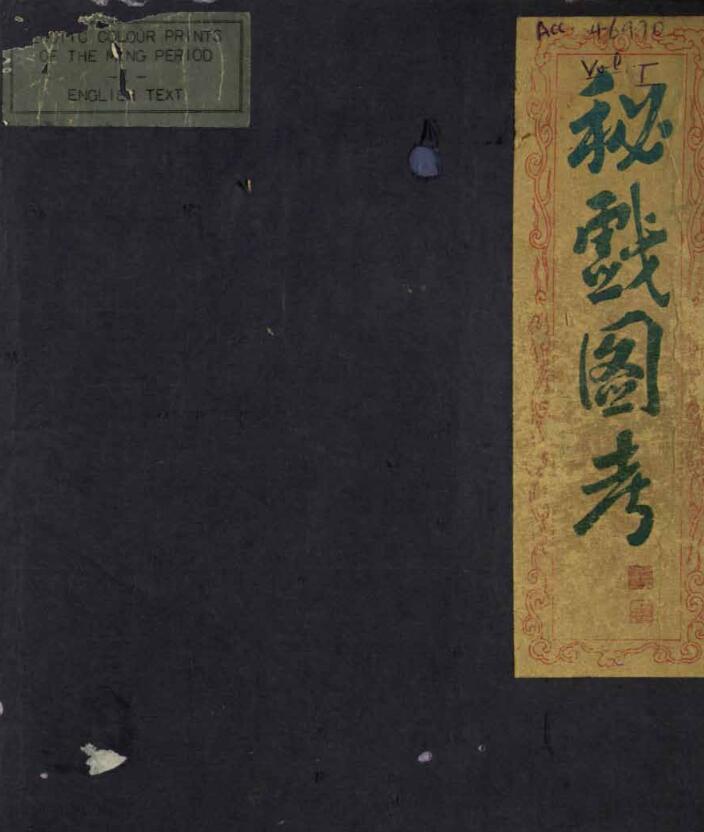 COLOUR PRINTS
OF THE MING PERIOD
— I —
ENGLISH TEXT
Acc 46970
Vol I
秘戲图考